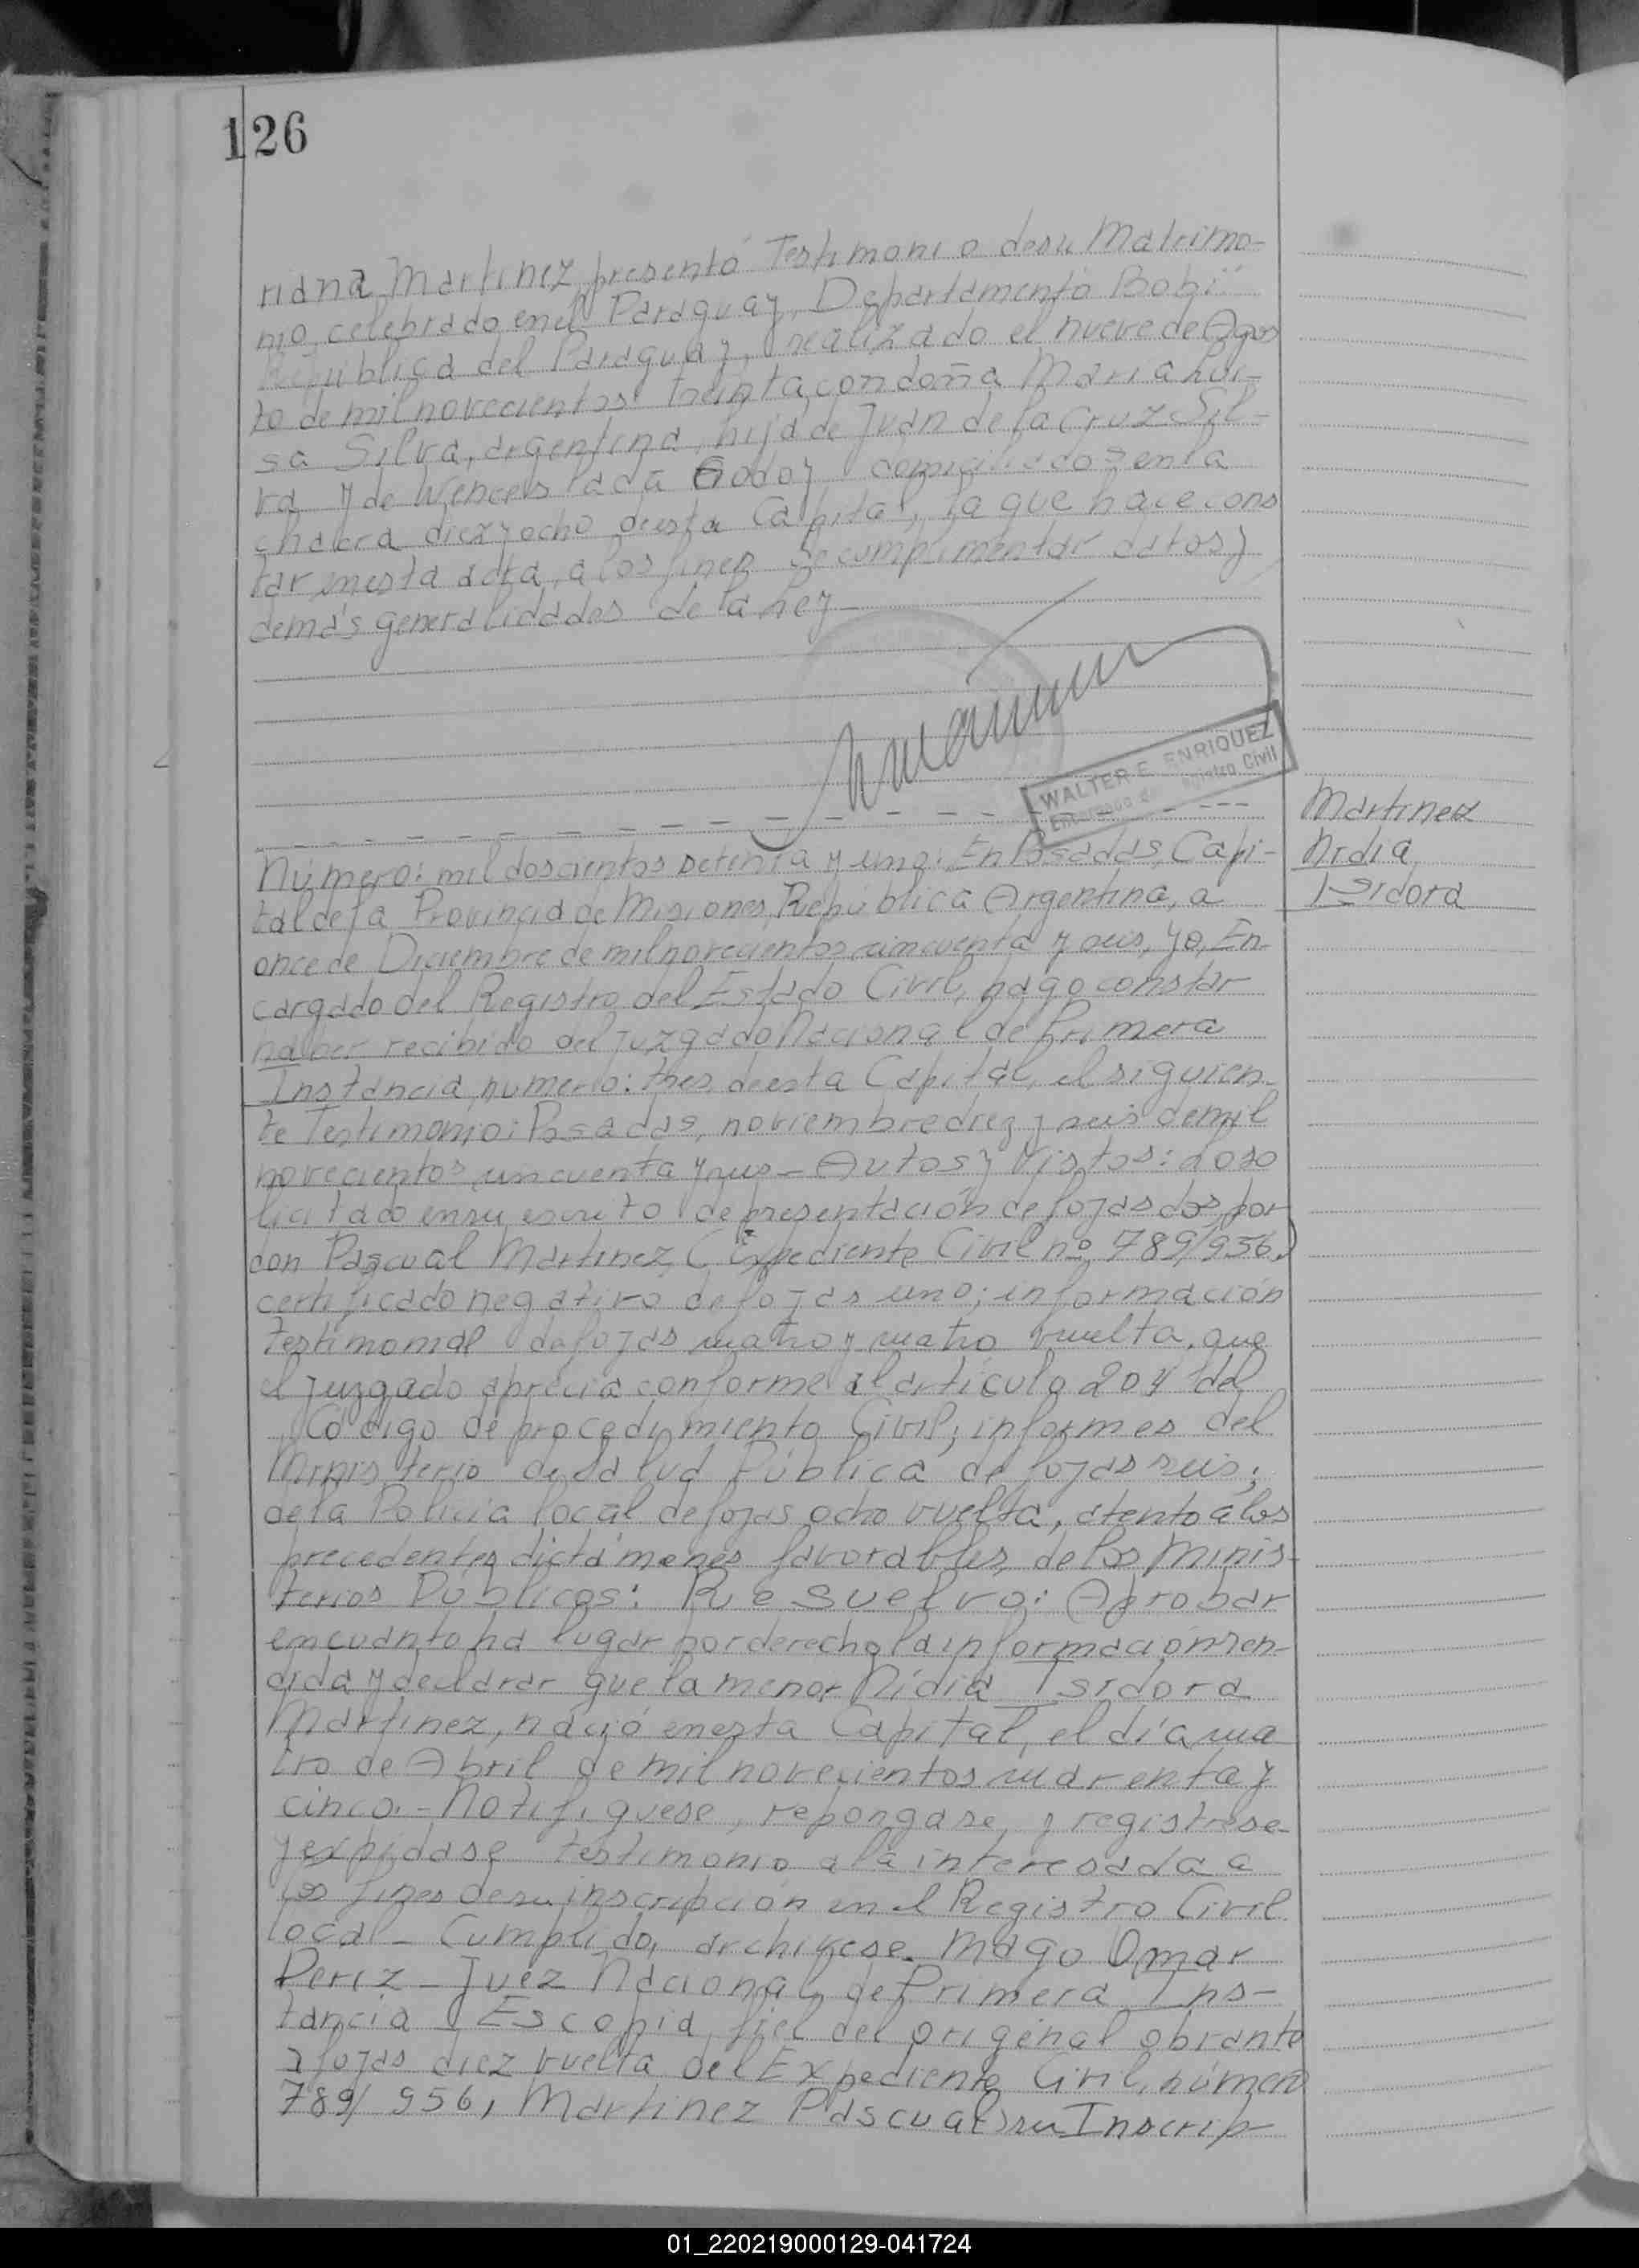 126
riana Martinez, presentó Testimonio de su Matrimo-
nio, celebrado en el Paraguay, Departamento Bobi
República del Paraguay, realizado el nueve de Agos
to de mil novecientos treinta, con doña Maria Lui-
sa Silva, argentina, hija de Juan de la Cruz Sil-
va y de Wenceslada Godoy domiciliados en la
chacra diez y ocho de esta Capital, la que hace cons
tar en esta acta, a los fines de cumplimentar datos y
demás generalidades de la Ley
WALTER E. ENRIQUEZ
Registro Civil
Martinez
Nidia
Isidora
Número: mil doscientos setenta y uno: En Posadas, Capi-
tal de la Provincia de Misiones, República Argentina, a
once de Diciembre de mil novecientos cincuenta y seis, yo, En-
cargado del Registro del Estado Civil, hago constar
haber recibido del Juzgado Nacional de Primera
Instancia, numero: tres, de esta Capital, el siguien-
te Testimonio: Posadas, noviembre diez y seis de mil
novecientos cincuenta y seis - Autos y Vistos: lo so
licitado en su escrito de presentación de fojas dos, por
don Pascual Martinez, (Expediente Civil nº 789/956)
certificado negativo de fojas uno; información
testimonial de fojas cuatro y cuatro vuelta, que
el juzgado aprecia conforme al artículo 204 del
Código de procedimiento Civil; informes del
Ministerio de Salud Pública de fojas seis;
de la Policia local de fojas ocho vuelta, atento a los
precedentes dictámenes favorables de los Minis-
terios Públicos: Resuelvo: Aprobar
en cuanto ha lugar por derecho la información ren-
dida y declarar que la menor Nidia Isidora
Martinez, nació en esta Capital, el día cua
tro de Abril de mil novecientos cuarenta y
cinco. - Notifiquese, repongase, y registrese
y expidase testimonio a la interesada a
los fines de su inscripción en el Registro Civil
local - Cumplido, archivese. Mago Omar
Periz - Juez Nacional de Primera Ins-
tancia Es copia fiel del original obrante
a fojas diez vuelta del Expediente Civil, número
789/956, Martinez Pascual su Inscrip
01_220219000129-041724